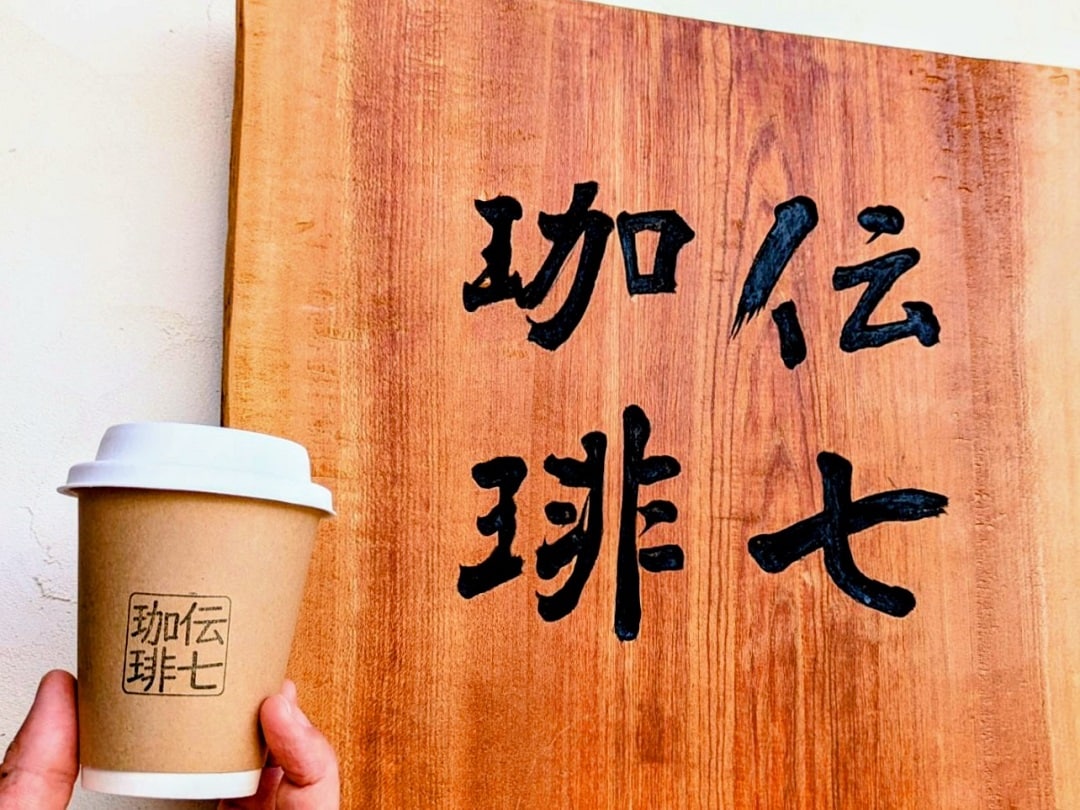 伝七
珈琲
伝七
珈琲